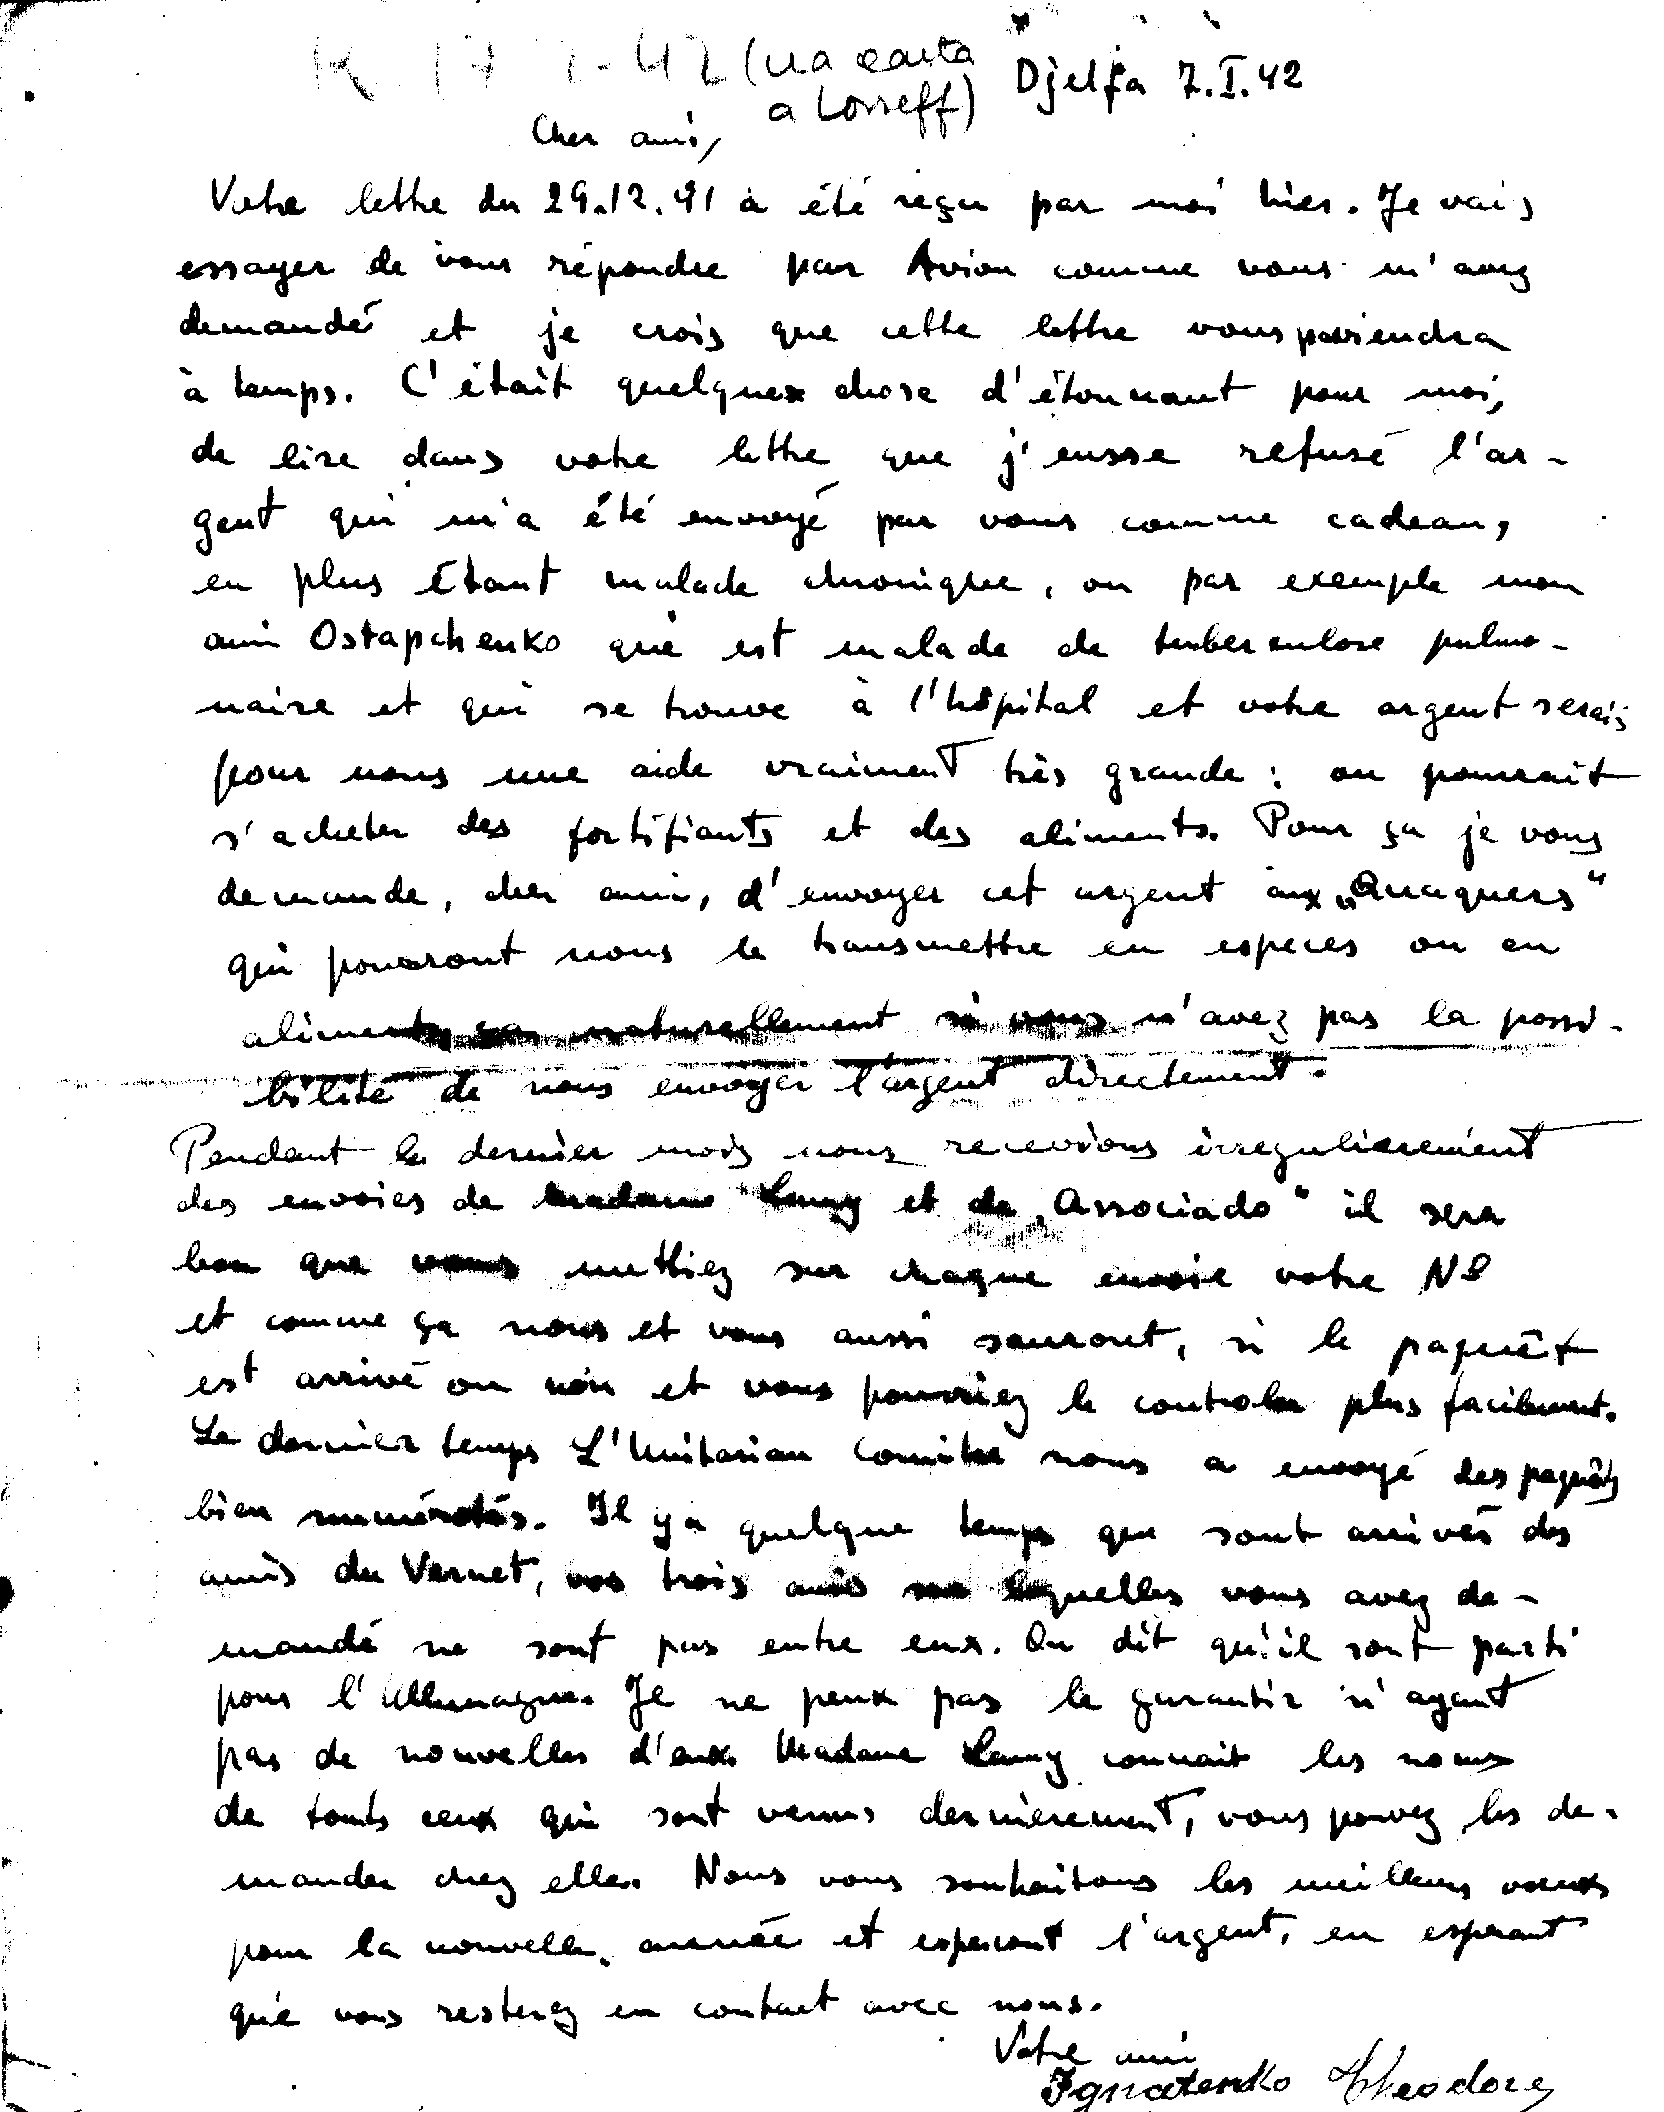 R 17 1-42 (na carta
a Losseff)
Djelfa 7.I.42
Cher ami,
Votre lettre du 29.12.41 à été reçu par moi hier. Je vais
essayer de vour répondre par Avion comme vous m'avez
demandé et je crois que cette lettre vous parviendra
à temps. C'était quelques chose d'étonnant pour moi,
de lire dans votre lettre que j'eusse refusé l'ar-
gent qui m'a été envoyé par vous comme cadeau,
en plus étant malade chronique, ou par exemple mon
ami Ostapchenko que est malade de tuberculose pulmo-
naire et qui se trouve à l'hôpital et votre argent serais
pour nous une aide vraiment très grande: on pourrait
s'acheter des fortifiants et des aliments. Pour ça je vous
demande, cher ami, d'envoyer cet argent aux „Quaquers“
qui pouvront nous le transmettre en especes ou en
aliments, naturellement si vous n'avez pas la possi-
bilité de nous envoyer l'argent directement.
Pendant le dernier mois nous recevions irregulièrement
des envoies de madame Lenny et de „Associado“ il sera
bon que vous mettiez sur chaque envoie votre No
et comme ça nous et vous aussi sauront, si le paquêt
est arrivé ou non et vous pouvriez le controler plus facilement.
Le dernier temps L'Unitarian Comitee nous a envoyé des paquêts
bien numérotés. Il y a quelque temps que sont arrivés des
amis du Vernet, vos trois amis lequelles vous avez de-
mandé ne sont pas entre eux. On dit qu'il sont parti
pour l'Allemagne. Je ne peux pas le garantir n'ayant
pas de nouvelles d'eux. Madame Lenny connait les noms
de touts ceux qui sont venus dernièrement, vous povez les de-
mander chez elle. Nous vous souhaitons les meilleurs voeux
pour la nouvelle année et esperont l'argent, en esperant
qu'e vous resterez en contact avec nous.
Votre ami
Ignatenko Theodore